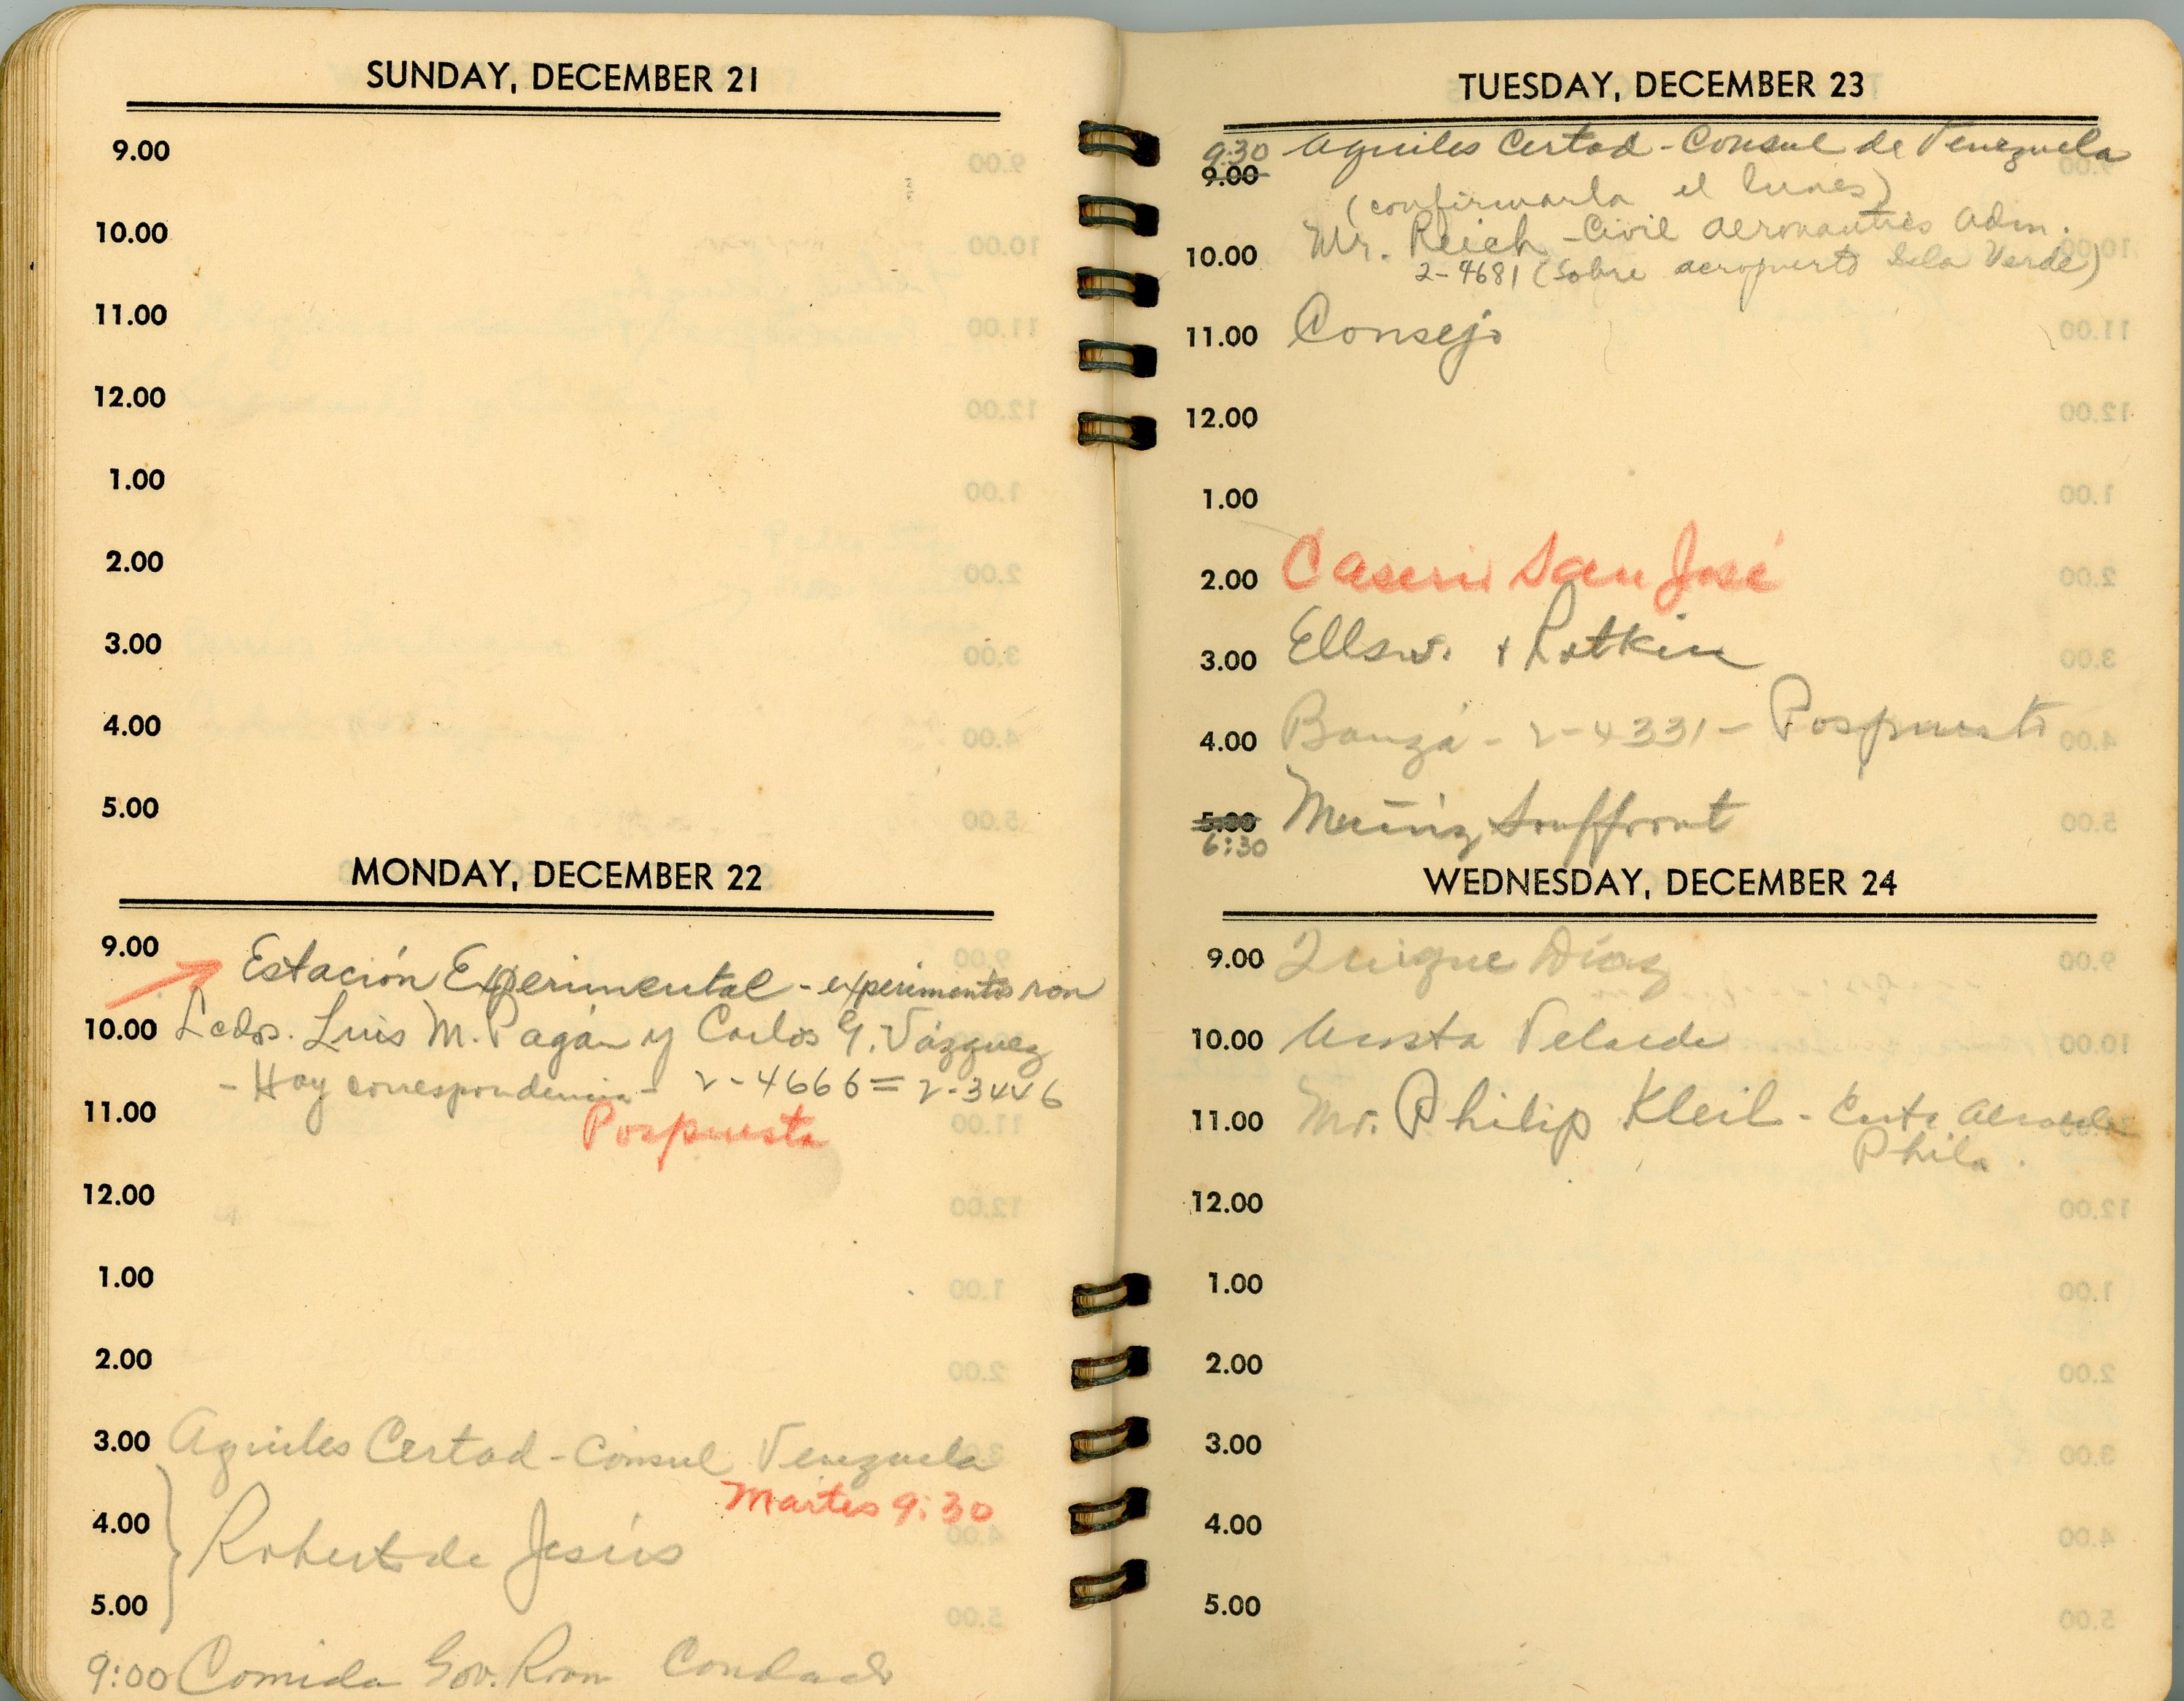 SUNDAY, DECEMBER 21
9.00
10.00
11.00
12.00
1.00
2.00
3.00
4.00
5.00
MONDAY, DECEMBER 22
9.00
Estación Experimental - experimentos ron
10.00 Lcdos. Luis M. Pagán y Carlos G. Vázquez
- Hay correspondencia - 2-4666 = 2-3446
11.00
Pospuesta
12.00
1.00
2.00
3.00 Aquiles Certad - Consul Venezuela
Martes 9:30
4.00
Roberto de Jesús
5.00
9:00 Comida Gov. Room Condado
TUESDAY, DECEMBER 23
9:30 Aquiles Certad - Consul de Venezuela
9.00
(confirmarla el lunes)
10.00 Mr. Reich - Civil Aeronautics Adm.
2-4681 (Sobre aeropuerto Isla Verde)
11.00 Consejo
12.00
1.00
2.00 Caserío San José
3.00 Ellsw. + Rotkin
4.00 - 2-4331 - Pospuesto
5.00 Muñiz Souffront
6:30
WEDNESDAY, DECEMBER 24
9.00 Quique Díaz
10.00 Acosta Velarde
11.00 Mr. Philip Kleil -
Phila.
12.00
1.00
2.00
3.00
4.00
5.00